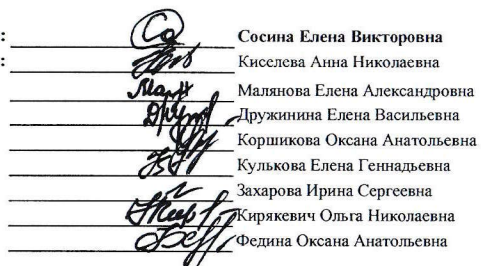 : Сосина Елена Викторовна
: Киселева Анна Николаевна
Малянова Елена Александровна
Дружинина Елена Васильевна
Коршикова Оксана Анатольевна
Кулькова Елена Геннадьевна
Захарова Ирина Сергеевна
Кирякевич Ольга Николаевна
Федина Оксана Анатольевна